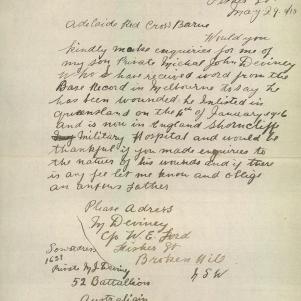 May 29th/18
Adelaide Red Cross Barue
Would you
kindly make enquiries for me of
my son Private Michal John Deviney
Who I have recieved word from the
Base Record in Melbourne to day he
has been wounded he Enlisted in
Queensland on the 4th of January 1916
and is now in England Shorncliffe
Military Hospital and would be
thankful if you made enquiries to
the nature of his wounds and if there
is any fee let me know and oblige
an anxous Father
Please Adress
M Deviney
C/o W. E. Ford
Fisher St
Broken Hill
N S W
Sons adress
1651
Private M J Deviney
52 Battalion
Australian